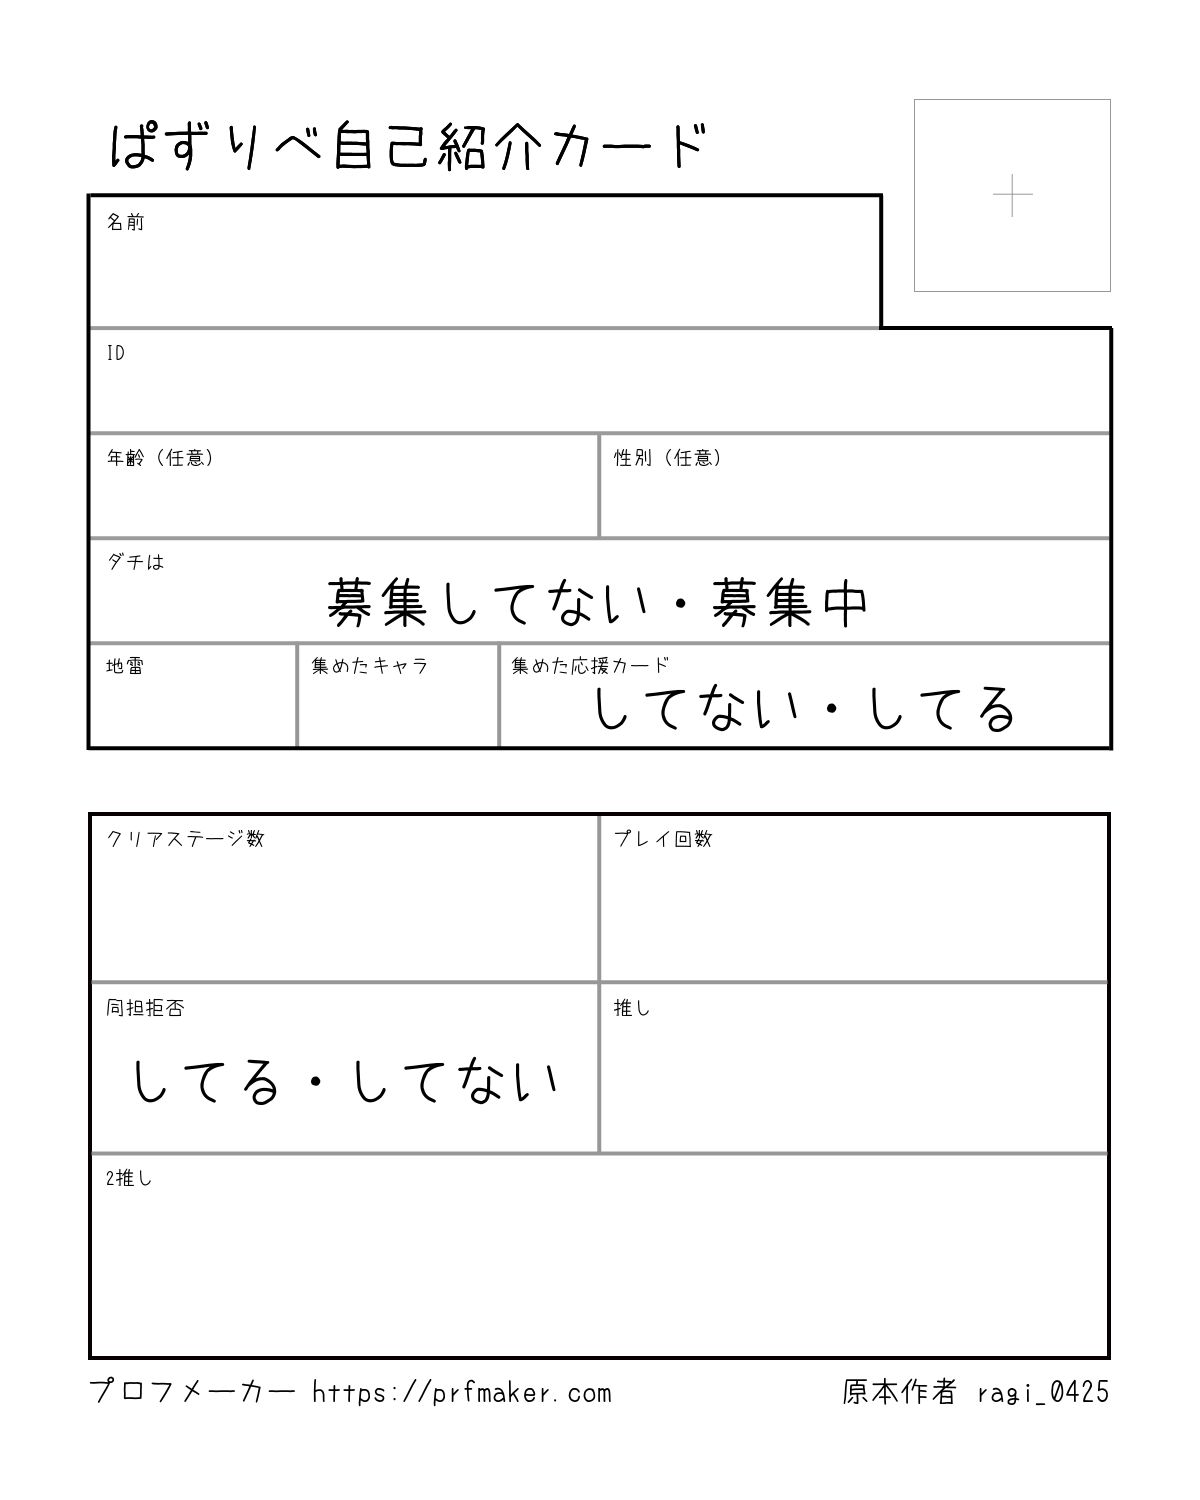 ぱずりべ自己紹介カード
名前
ID
年齢（任意） 性別（任意）
ダチは
募集してない・募集中
地雷 集めたキャラ 集めた応援カード
してない・してる
クリアステージ数 プレイ回数
同担拒否 推し
してる・してない
2推し
プロフメーカー https://prfmaker.com 原本作者 ragi_0425